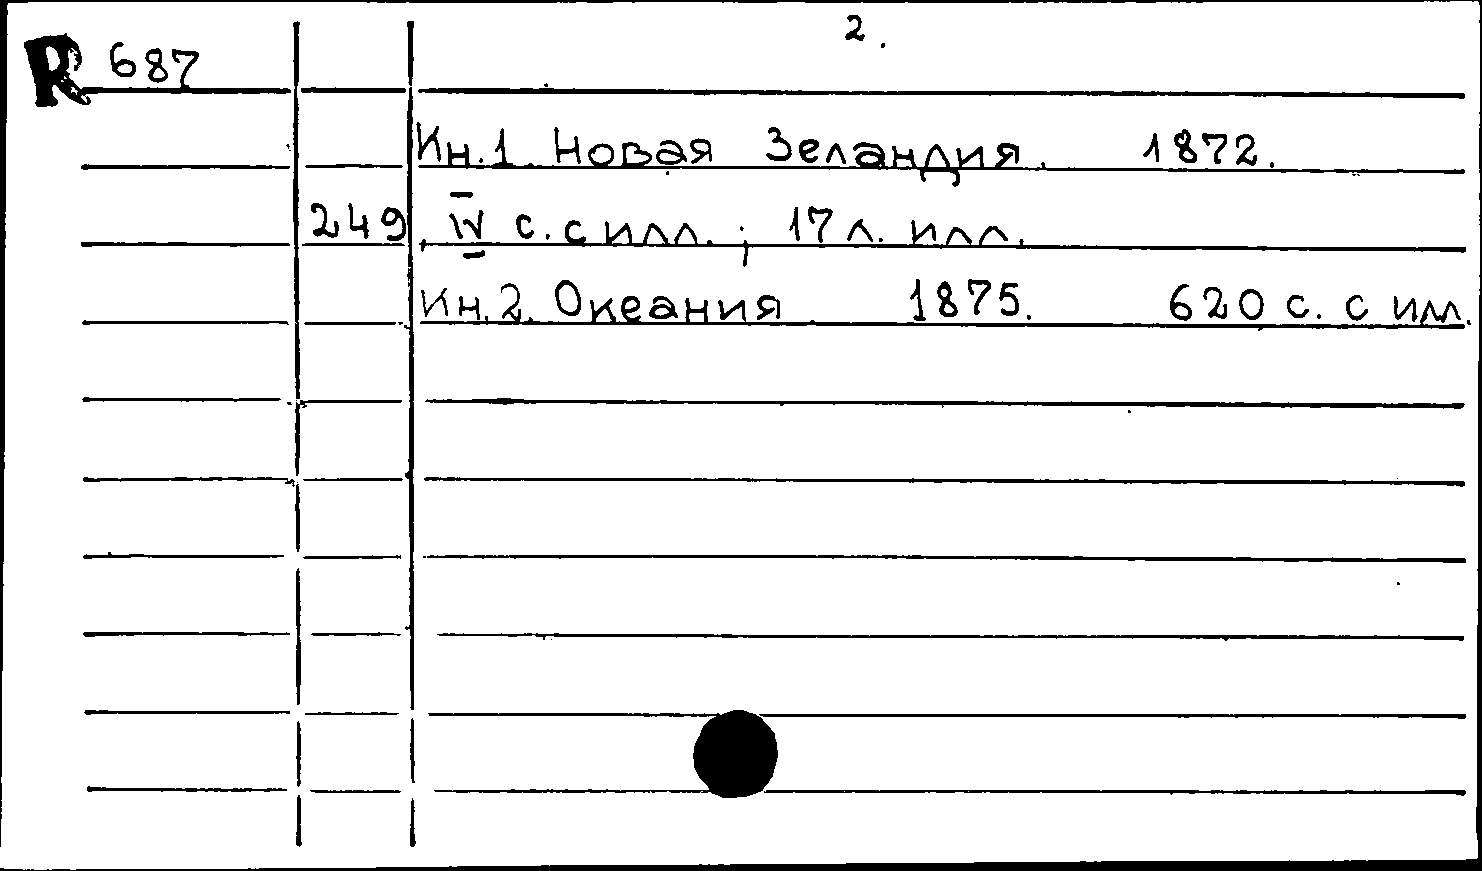 2.
R 687
Кн.1. Новая Зеландия. 1872.
249, IV с. с илл.; 17 л. илл.
Кн.2. Океания 1875. 620 с. с илл.